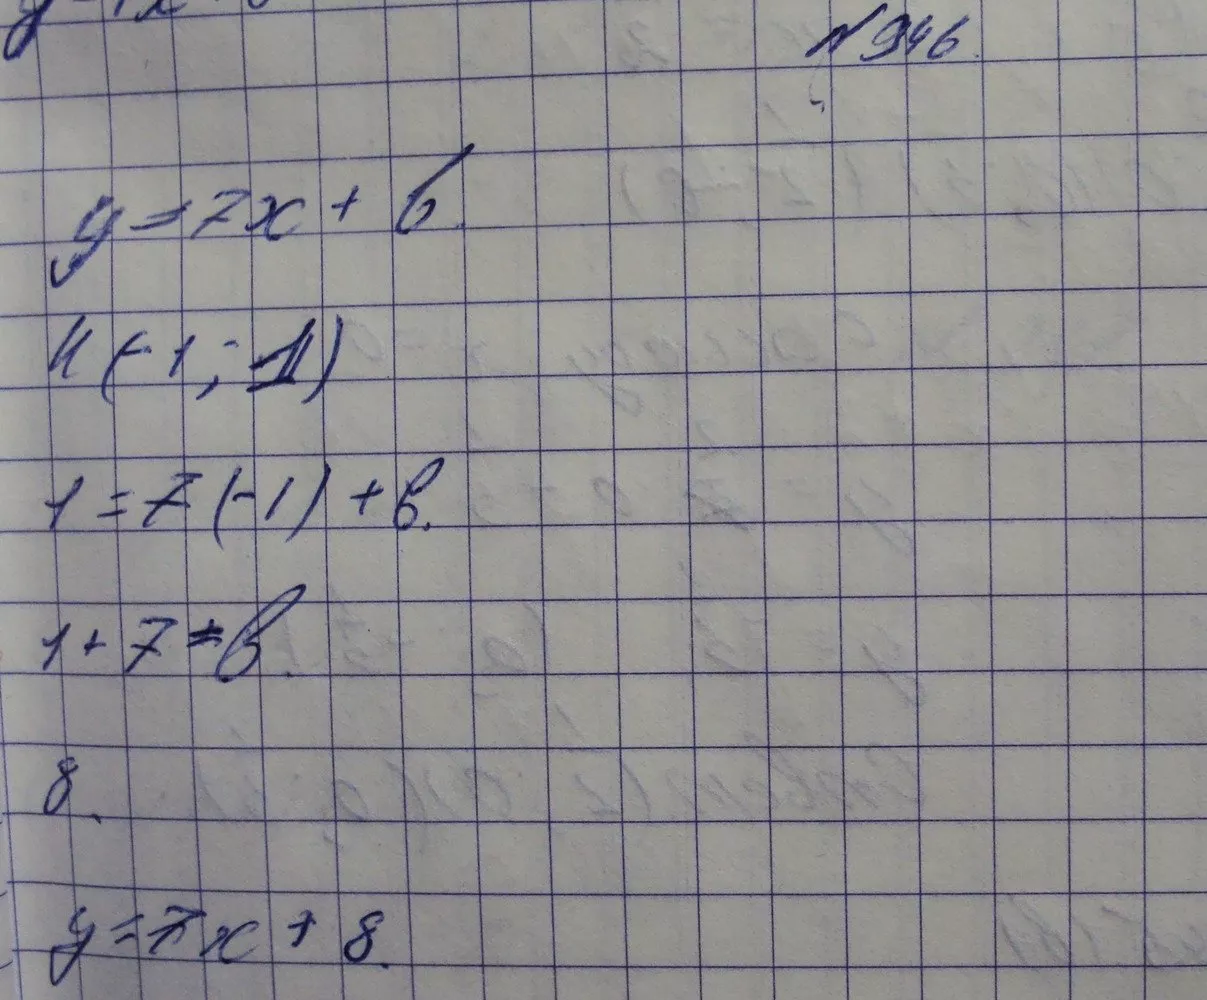 N 946.
y = 7x + b.
K(-1; 1)
1 = 7(-1) + b.
1 + 7 = b.
8.
y = 7x + 8.